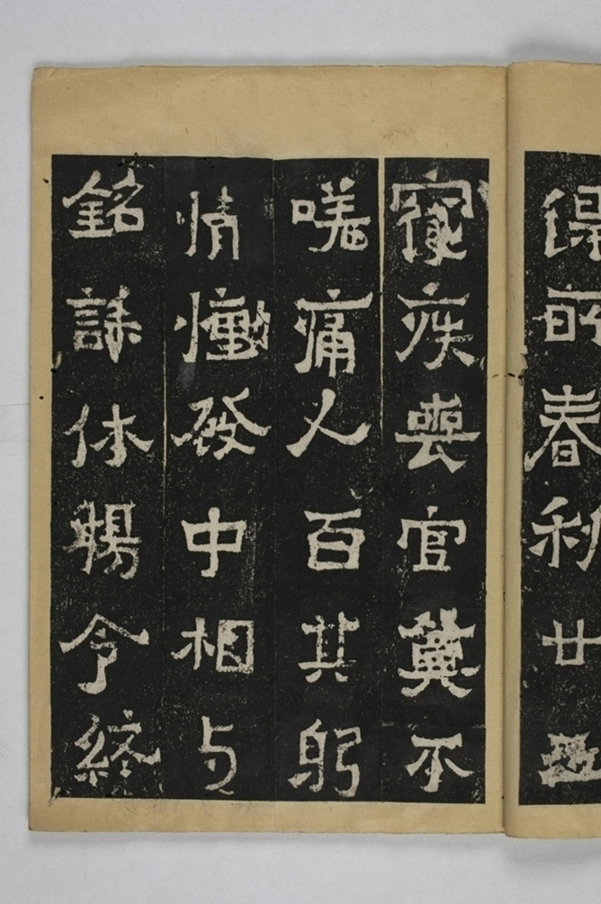 得所春秋廿
寢疾喪官莫不
嗟痛人百其躬
情慟發中相与
銘誄休揚令終